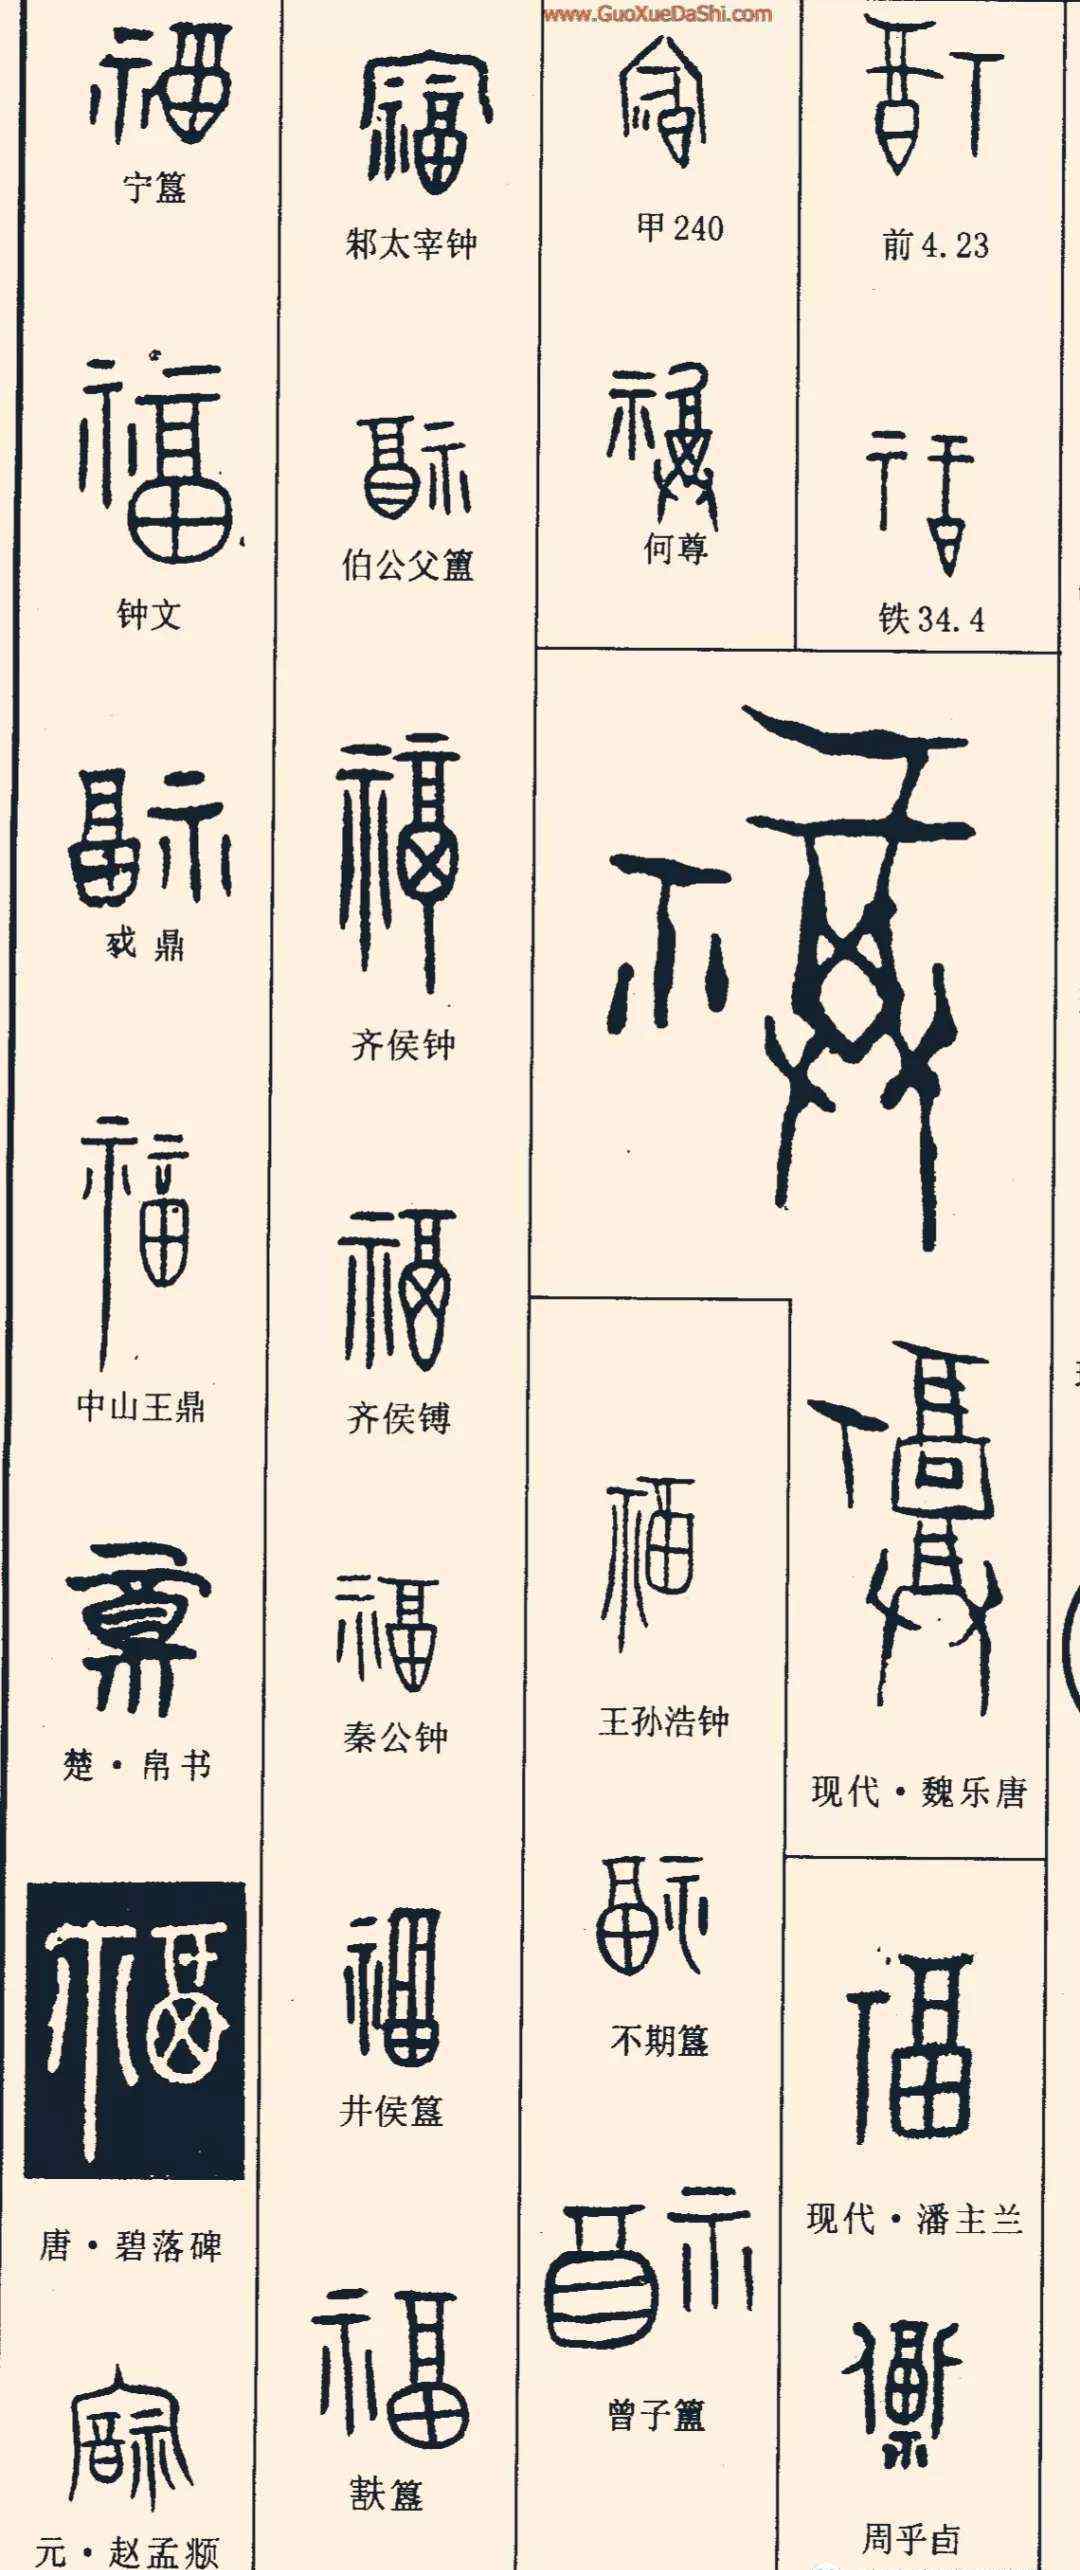 www.GuoXueDaShi.com
前4.23
铁34.4
现代·魏乐唐
现代·潘主兰
周乎卣
甲240
何尊
王孙浩钟
不期簋
曾子簠
邾太宰钟
伯公父簠
齐侯钟
齐侯镈
秦公钟
井侯簋
簋
宁簋
钟文
鼎
中山王鼎
楚·帛书
唐·碧落碑
元·赵孟頫